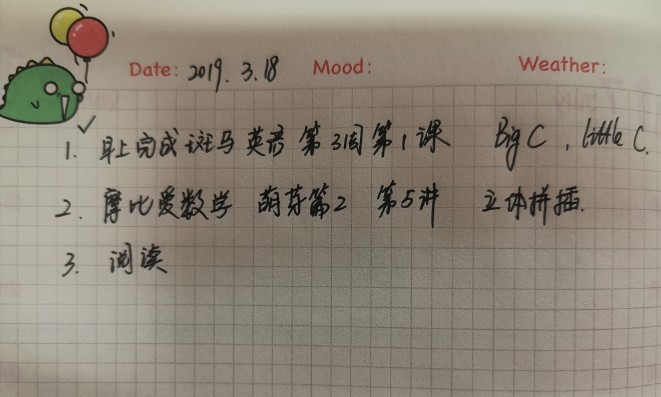 Date: 2019. 3. 18 Mood: Weather:
1. 早上完成斑马英语 第3周第1课 Big C, little C.
2. 摩比爱数学 萌芽篇2 第5讲 立体拼插.
3. 阅读